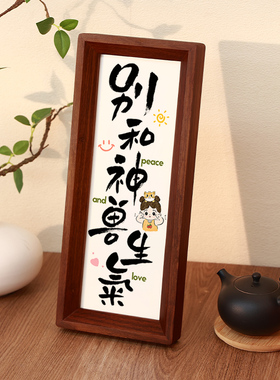 别和神兽生氣
peace
and
love